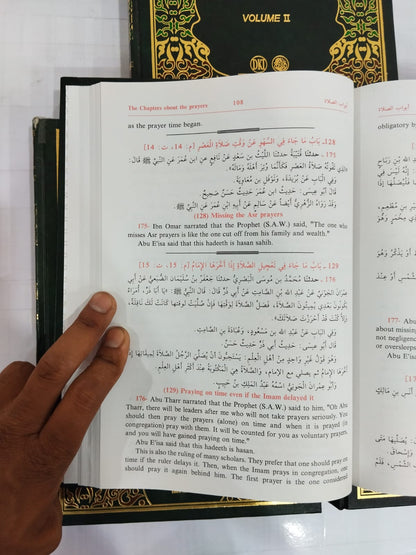 VOLUME II
DKI
The Chapters about the prayers
108
أبواب الصلاة
as the prayer time began.
128ـ بَابُ مَا جَاءَ فِي السَّهْوِ عَنْ وَقْتِ صَلَاةِ الْعَصْرِ [م: 14، ت: 14]
175 ـ حدثنا قُتَيْبَةُ حدثنا اللَّيْثُ بنُ سَعْدٍ عَنْ نَافِعٍ عن ابنِ عُمَرَ عَنِ النَّبِيِّ ﷺ قَالَ:
الَّذِي تَفُوتُهُ صَلَاةُ الْعَصْرِ فَكَأَنَّمَا وُتِرَ أَهْلَهُ وَمَالَهُ.
وَفِي الْبَابِ عَنْ بُرَيْدَةَ، وَنَوْفَلِ بنِ مُعَاوِيَةَ.
قَالَ أبو عِيسَى: حَدِيثُ ابنِ عُمَرَ حَدِيثٌ حَسَنٌ صَحِيحٌ.
وَقَدْ رَوَاهُ الزُّهْرِيُّ أَيْضاً عَنْ سَالِمٍ عَنْ أَبِيهِ ابنِ عُمَرَ عَنِ النَّبِيِّ ﷺ.
(128) Missing the Asr prayers
175- Ibn Omar narrated that the Prophet (S.A.W.) said, "The one who
misses Asr prayers is like the one cut off from his family and wealth."
Abu E'isa said that this hadeeth is hasan sahih.
129 ـ بَابُ مَا جَاءَ فِي تَعْجِيلِ الصَّلَاةِ إِذَا أَخَّرَهَا الإِمَامُ [م: 15، ت: 15]
176 ـ حدثنا مُحَمَّدُ بن مُوسَى الْبَصْرِيُّ حدثنا جَعْفَرُ بنُ سُلَيْمَانَ الضُّبَعِيُّ عَنْ أَبِي
عِمْرَانَ الْجَوْنِيِّ عَنْ عَبْدِ الله بنِ الصَّامِتِ عَنْ أَبِي ذَرٍّ قَالَ: قَالَ النَّبِيُّ ﷺ: يَا أَبَا ذَرٍّ، أُمَرَاءُ
يَكُونُونَ بَعْدِي يُمِيتُونَ الصَّلَاةَ، فَصَلِّ الصَّلَاةَ لِوَقْتِهَا فَإِنْ صُلِّيَتْ لِوَقْتِهَا كَانَتْ لَكَ نَافِلَةً،
وَإِلَّا كُنْتَ قَدْ أَحْرَزْتَ صَلَاتَكَ.
وَفِي الْبَابِ عَنْ عَبْدِ الله بنِ مَسْعُودٍ، وَعُبَادَةَ بنِ الصَّامِتِ.
قَالَ أبو عِيسَى: حَدِيثُ أَبِي ذَرٍّ حَدِيثٌ حَسَنٌ.
وَهُوَ قَوْلُ غَيْرِ وَاحِدٍ مِنْ أَهْلِ الْعِلْمِ: يَسْتَحِبُّونَ أَنْ يُصَلِّيَ الرَّجُلُ الصَّلَاةَ لِمِيقَاتِهَا إِذَا
أَخَّرَهَا الإِمَامُ ثم يُصَلِّي مَعَ الإِمَامِ، وَالصَّلَاةُ الْأُولَى هِيَ الْمَكْتُوبَةُ عِنْدَ أَكْثَرِ أَهْلِ الْعِلْمِ.
وَأَبُو عِمْرَانَ الْجَوْنِيُّ اسْمُهُ عَبْدُ الْمَلِكِ بْنُ حَبِيبٍ.
(129) Praying on time even if the Imam delayed it
176- Abu Tharr narrated that the Prophet (S.A.W.) said to him, "Oh Abu
Tharr, there will be leaders after me who will not take prayers seriously. You
should then pray the prayers (alone) on time and when it is prayed (in
congregation) pray with them. It will be counted for you as voluntary prayers,
and you will have gained praying on time."
Abu E'isa said that this hadeeth is hasan.
This is also the ruling of many scholars. They prefer that one should pray on
time if the ruler delays it. Then, when the Imam prays in congregation, one
should pray it again behind him. The first prayer is the one considered
أبواب الصلاة
obligatory b
177- Abu
about missing
not negligence
or oversleeps
Abu E'isa